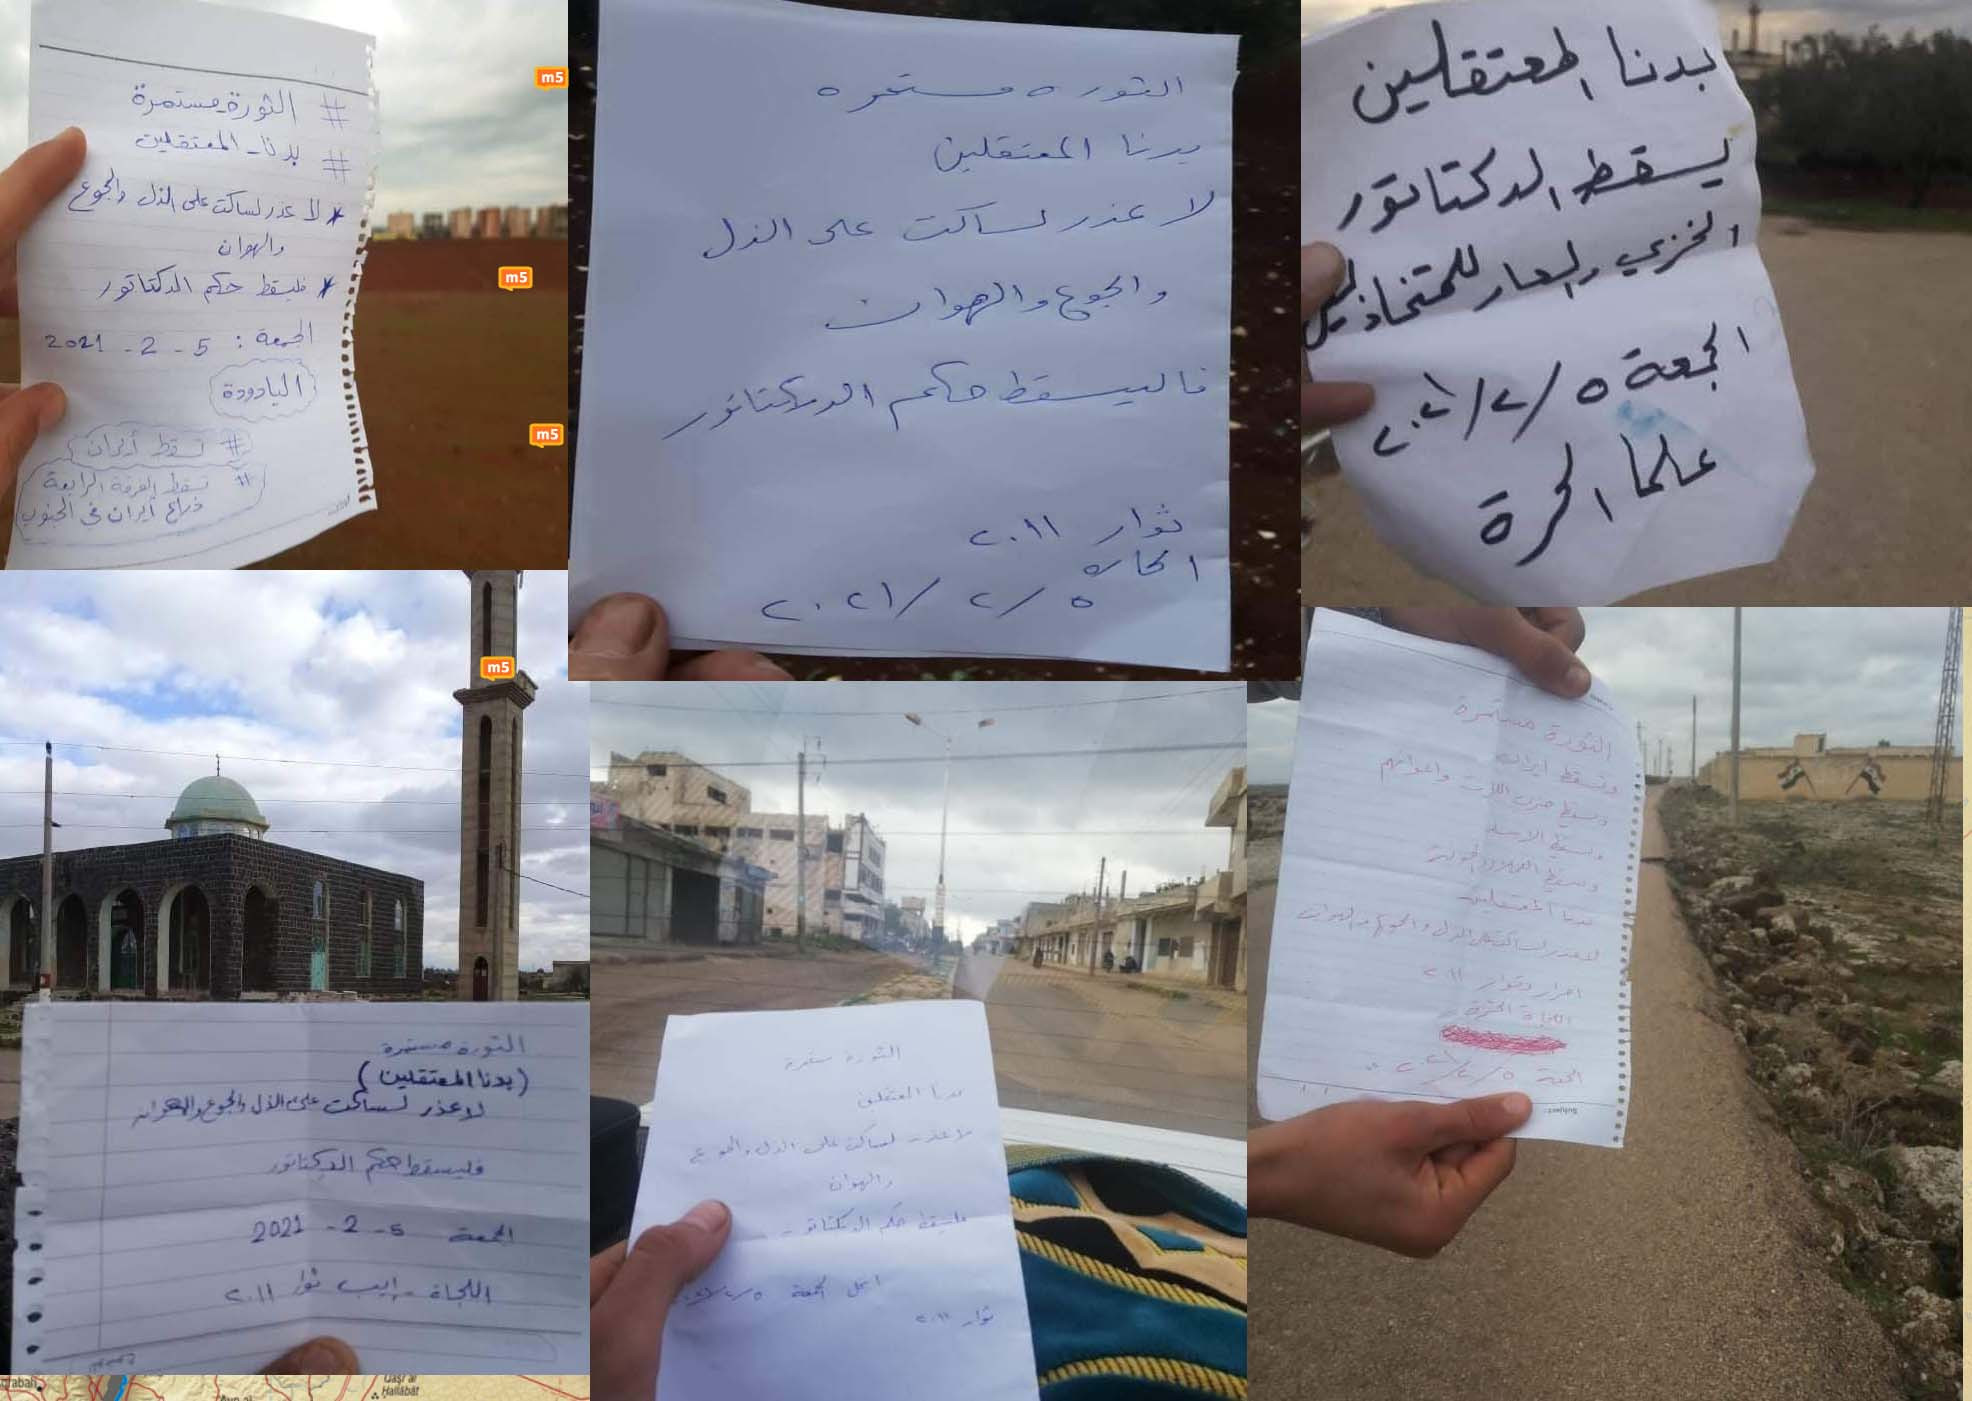 # الثورة_مستمرة
# بدنا_المعتقلين
* لا عذر لساكت على الذل والجوع
والهوان
* فليسقط حكم الدكتاتور
الجمعة : 5 - 2 - 2021
اليادودة
# تسقط أيران
# تسقط الفرقة الرابعة
ذراع أيران في الجنوب
m5
m5
m5
الثوره مستمره
بدنا المعتقلين
لا عذر لساكت على الذل
والجوع والهوان
فاليسقط حكم الدكتاتور
ثوار ٢٠١١
الحاره
٥ / ٢ / ٢٠٢١
بدنا المعتقلين
ليسقط الدكتاتور
الخزي والعار للمتخاذلين
الجمعة ٥ / ٢ / ٢٠٢١
علما الحرة
m5
الثورة مستمرة
(بدنا المعتقلين)
لا عذر لساكت على الذل والجوع والهوان
فليسقط حكم الدكتاتور
الجمعة 5 - 2 - 2021
اللجاة - ايب ثوار ٢٠١١
الثورة مستمرة
بدنا المعتقلين
لا عذر لساكت على الذل والجوع
والهوان
فليسقط حكم الدكتاتور
الجمعة ٥/٢/
ثوار ٢٠١١
الثورة مستمرة
وتسقط ايران
ويسقط حزب اللات واعوانهم
ويسقط الاسد
بدنا المعتقلين
لا عذر لساكت على الذل والجوع والهوان
احرار وثوار ٢٠١١
اللجاة الحرة
الجمعة ٥/٢/٢٠٢١
Subject:
Qaşr al
Ḩallābāt